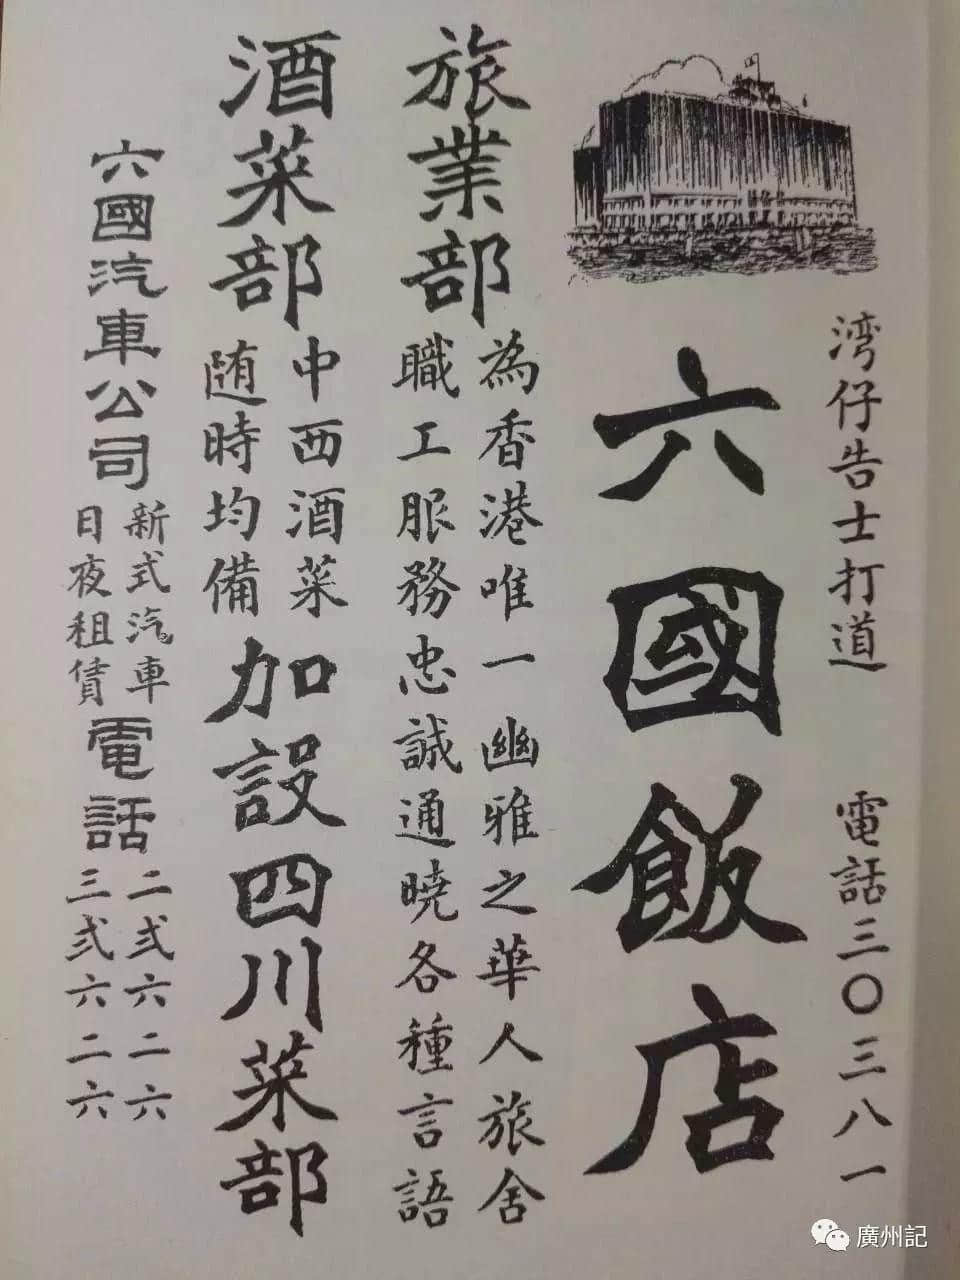 湾仔告士打道　電話三〇三八一
六國飯店
旅業部
為香港唯一幽雅之華人旅舍
職工服務忠誠通曉各種言語
酒菜部
中西酒菜
随時均備
加設四川菜部
六國汽車公司
新式汽車
日夜租賃
電話
二弍六二六
三弍六二六
廣州記